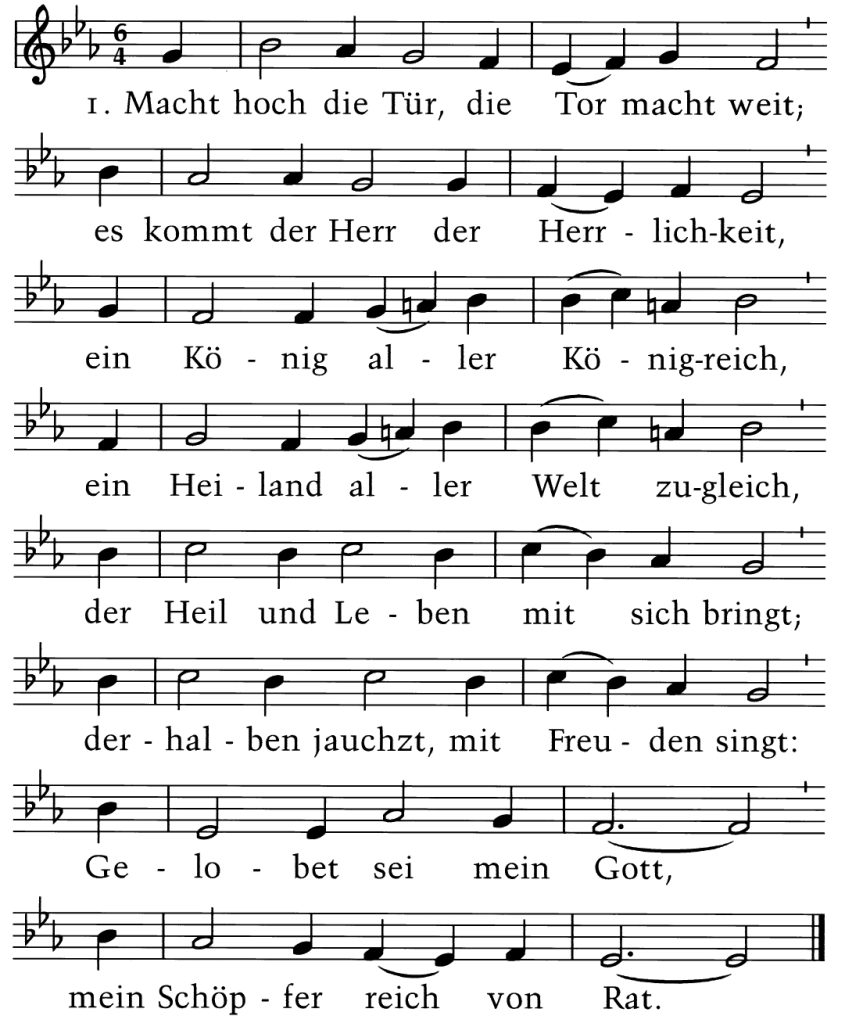 6
4
1. Macht hoch die Tür, die Tor macht weit;
es kommt der Herr der Herr - lich-keit,
ein Kö - nig al - ler Kö - nig-reich,
ein Hei - land al - ler Welt zu-gleich,
der Heil und Le - ben mit sich bringt;
der - hal - ben jauchzt, mit Freu - den singt:
Ge - lo - bet sei mein Gott,
mein Schöp - fer reich von Rat.